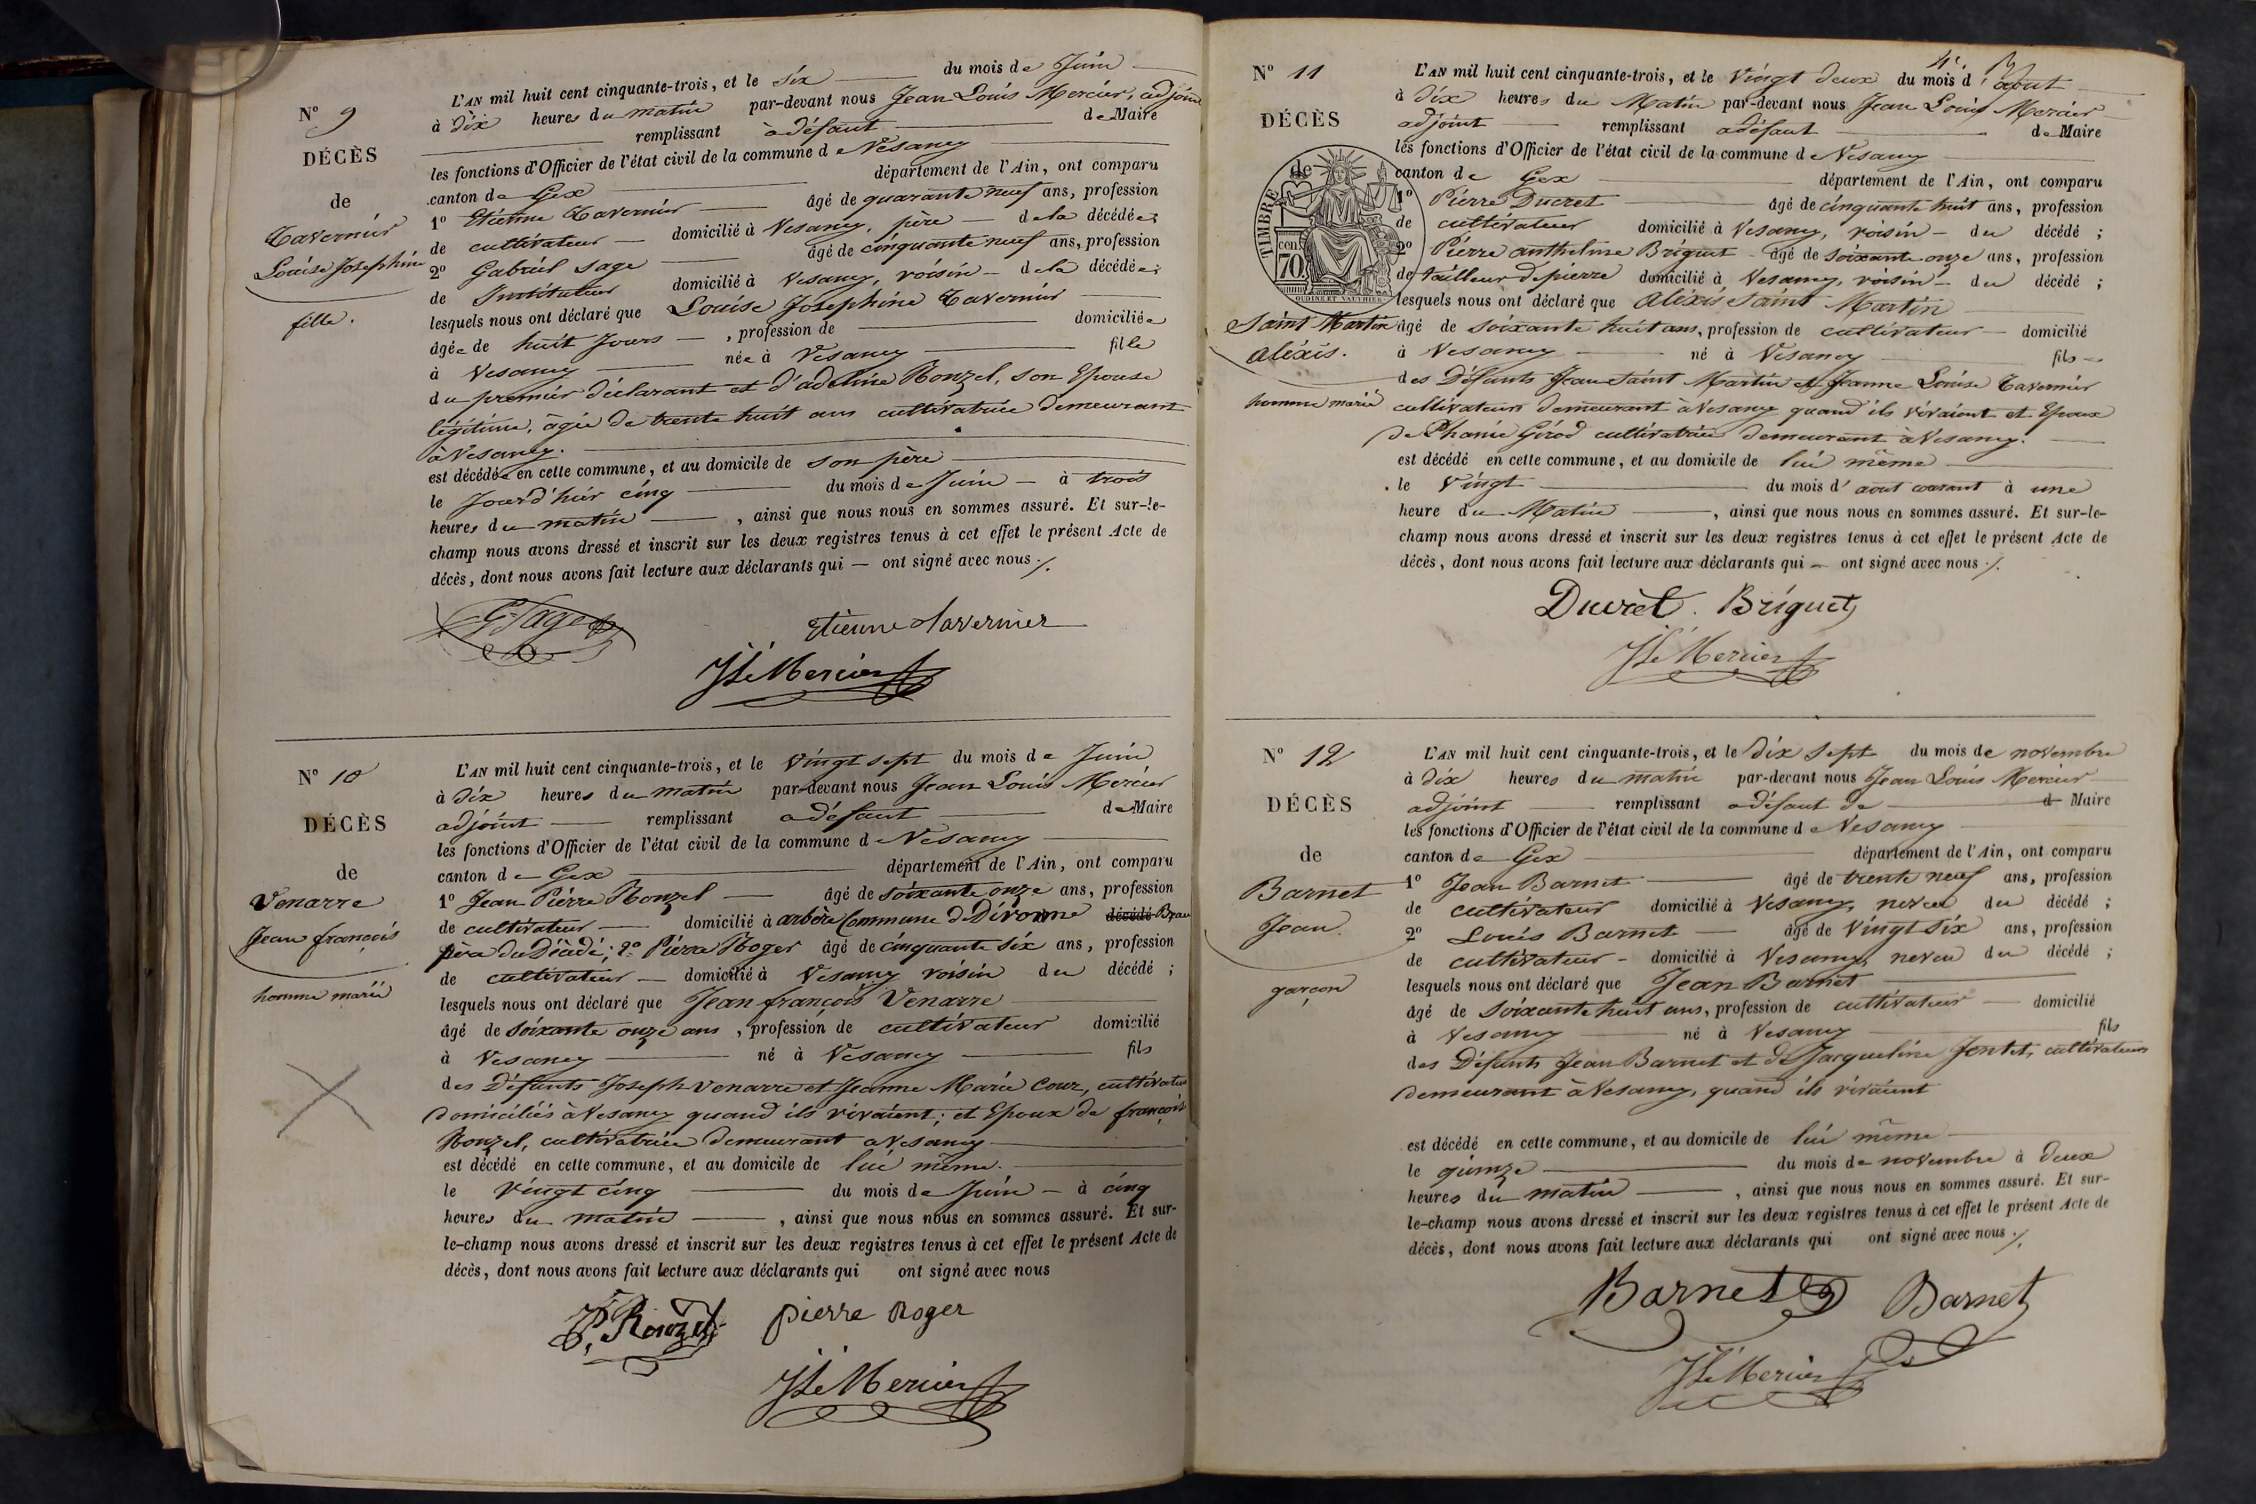 N° 9
DÉCÈS
de
Tavernier
Louise Josephine
fille.
L'AN mil huit cent cinquante-trois, et le six du mois de Juin
à dix heures du matin par-devant nous Jean Louis Mercier, adjoint
remplissant à défaut de Maire
les fonctions d'Officier de l'état civil de la commune de Vesancy
canton de Gex département de l'Ain, ont comparu
1° Etienne Tavernier âgé de quarante neuf ans, profession
de cultivateur domicilié à Vesancy, père de la décédée;
2° Gabriel Sage âgé de cinquante neuf ans, profession
de Instituteur domicilié à Vesancy, voisin de la décédée;
lesquels nous ont déclaré que Louise Josephine Tavernier
âgée de huit Jours, profession de domiciliée
à Vesancy née à Vesancy fille
du premier déclarant et d'adeline Ronzel, son Epouse
légitime, âgée de trente huit ans cultivatrice demeurant
à Vesancy.
est décédée en cette commune, et au domicile de son père
le Jourd'hier cinq du mois de Juin à trois
heures du matin, ainsi que nous nous en sommes assuré. Et sur-le-
champ nous avons dressé et inscrit sur les deux registres tenus à cet effet le présent Acte de
décès, dont nous avons fait lecture aux déclarants qui — ont signé avec nous ./.
G. Sage Etienne Tavernier
JLs Mercier
N° 10
DÉCÈS
de
Venarre
Jean françois
homme marié
L'AN mil huit cent cinquante-trois, et le vingt sept du mois de Juin
à dix heures du matin par-devant nous Jean Louis Mercier
adjoint remplissant à défaut de Maire
les fonctions d'Officier de l'état civil de la commune de Vesancy
canton de Gex département de l'Ain, ont comparu
1° Jean Pierre Ronzel âgé de soixante onze ans, profession
de cultivateur domicilié à arbère Commune de Divonne décédé Beau
père du Décédé; 2° Pierre Roger âgé de cinquante six ans, profession
de cultivateur domicilié à Vesancy voisin du décédé;
lesquels nous ont déclaré que Jean françois Venarre
âgé de soixante onze ans, profession de cultivateur domicilié
à Vesancy né à Vesancy fils
des Défunts Joseph Venarre et Jeanne Marie Cour, cultivateurs
domiciliés à Vesancy quand ils vivaient; et Epoux de françoise
Ronzel, cultivatrice demeurant à Vesancy
est décédé en cette commune, et au domicile de lui même.
le vingt cinq du mois de Juin à cinq
heures du matin, ainsi que nous nous en sommes assuré. Et sur-
le-champ nous avons dressé et inscrit sur les deux registres tenus à cet effet le présent Acte de
décès, dont nous avons fait lecture aux déclarants qui ont signé avec nous
JP. Ronzel pierre Roger
JLs Mercier
N° 11
DÉCÈS
de
TIMBRE
cen
70
OUDINE ET VAUTHIER
Saint Martin
aléxis.
homme marié
L'AN mil huit cent cinquante-trois, et le vingt deux du mois d'août
à dix heures du Matin par-devant nous Jean Louis Mercier
adjoint remplissant à défaut de Maire
les fonctions d'Officier de l'état civil de la commune de Vesancy
canton de Gex département de l'Ain, ont comparu
1° Pierre Ducret âgé de cinquante huit ans, profession
de cultivateur domicilié à Vesancy, voisin du décédé;
2° Pierre anthelme Briguet âgé de soixante onze ans, profession
de tailleur de pierre domicilié à Vesancy, voisin du décédé;
lesquels nous ont déclaré que aléxis Saint Martin
âgé de soixante huit ans, profession de cultivateur domicilié
à Vesancy né à Vesancy fils
des Défunts Jean Saint Martin et Jeanne Louise Tavernier
cultivateurs demeurant à Vesancy quand ils vivaient et Epoux
de Phanie Girod cultivatrice demeurant à Vesancy.
est décédé en cette commune, et au domicile de lui même
le vingt du mois d'aout courant à une
heure du Matin, ainsi que nous nous en sommes assuré. Et sur-le-
champ nous avons dressé et inscrit sur les deux registres tenus à cet effet le présent Acte de
décès, dont nous avons fait lecture aux déclarants qui — ont signé avec nous ./.
Ducret. Briguet
JLs Mercier
N° 12
DÉCÈS
de
Barnet
Jean
garçon
L'AN mil huit cent cinquante-trois, et le dix sept du mois de novembre
à dix heures du matin par-devant nous Jean Louis Mercier
adjoint remplissant à défaut de d Maire
les fonctions d'Officier de l'état civil de la commune de Vesancy
canton de Gex département de l'Ain, ont comparu
1° Jean Barnet âgé de trente neuf ans, profession
de cultivateur domicilié à Vesancy, neveu du décédé;
2° Louis Barnet âgé de vingt six ans, profession
de cultivateur domicilié à Vesancy neveu du décédé;
lesquels nous ont déclaré que Jean Barnet
âgé de soixante huit ans, profession de cultivateur domicilié
à Vesancy né à Vesancy fils
des Défunts Jean Barnet et de Jacqueline Jentet, cultivateurs
demeurant à Vesancy, quand ils vivaient
est décédé en cette commune, et au domicile de lui même
le quinze du mois de novembre à deux
heures du matin, ainsi que nous nous en sommes assuré. Et sur-
le-champ nous avons dressé et inscrit sur les deux registres tenus à cet effet le présent Acte de
décès, dont nous avons fait lecture aux déclarants qui ont signé avec nous ./.
Barnet Barnet
JLs Mercier